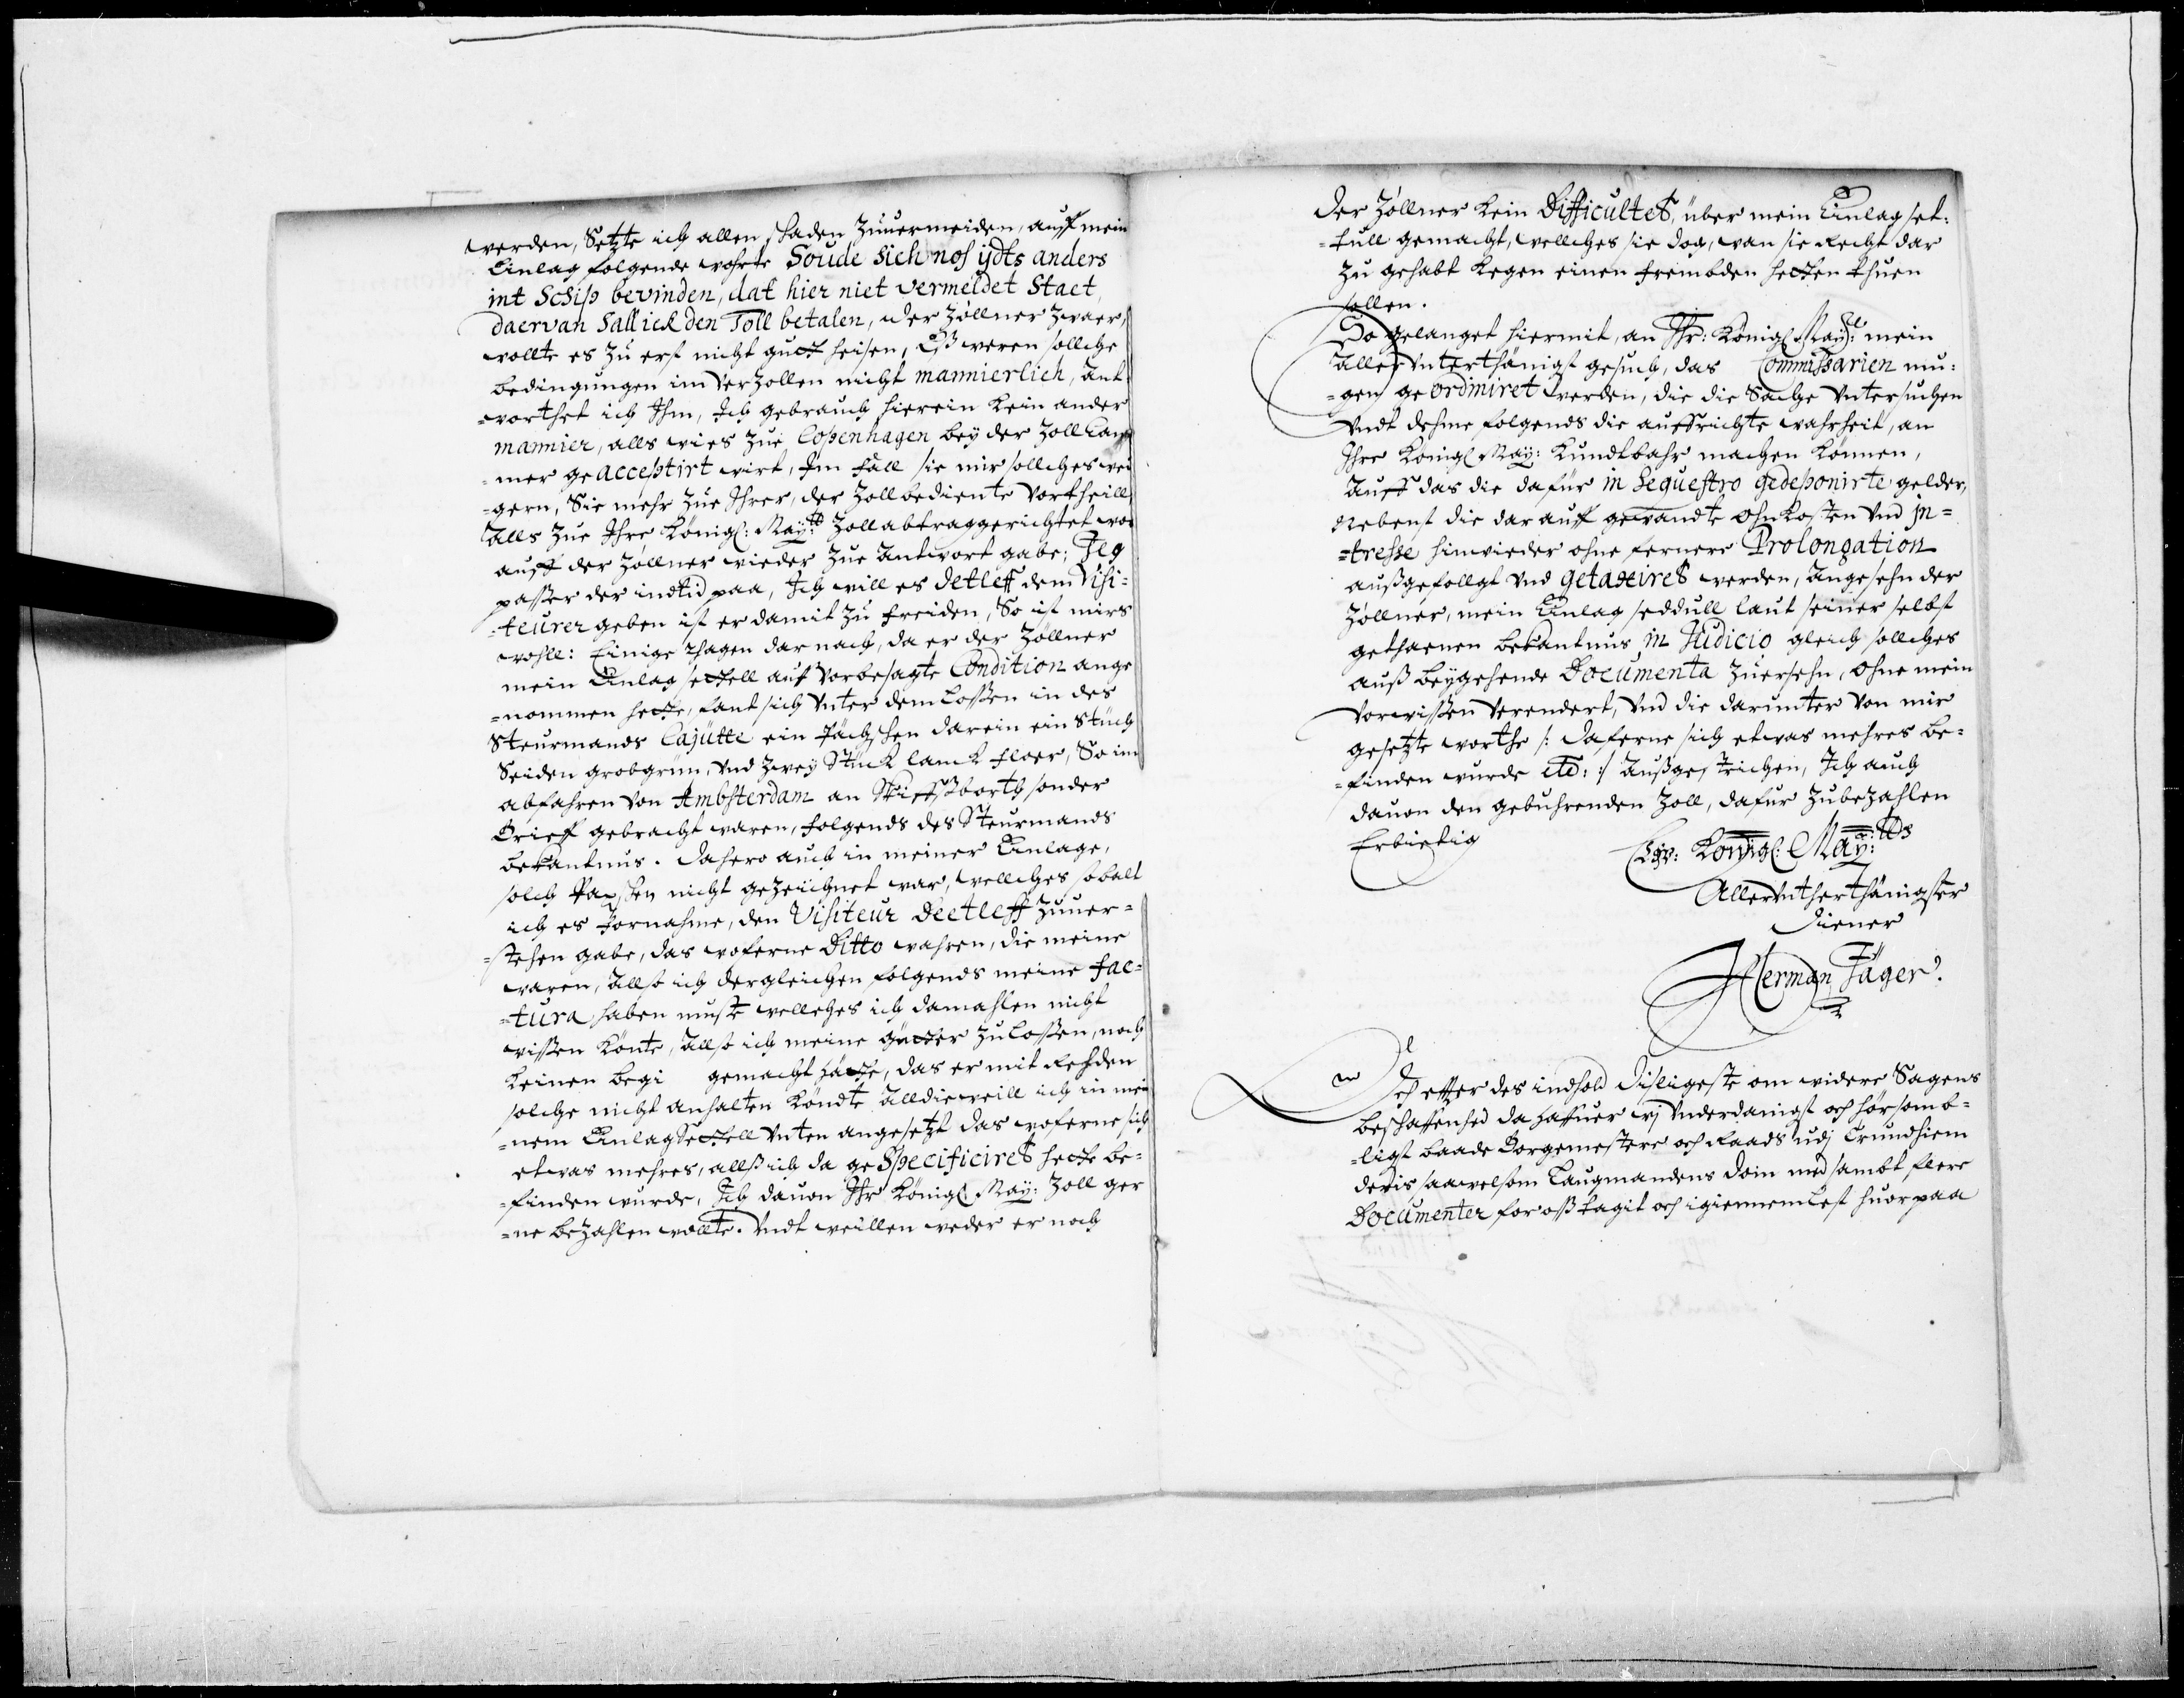 werden, Setzte ich allen schaden zuuermeiden, auff mein
Einlag folgende wohrte Soude sich nos ijdts anders
int Schip bevinden, dat hier niet vermeldet Staet,
daervan Sall ick den Toll betalen, der Zöllner zwaer,
wollte es zu erst nicht guth heisen, Eß weren sollche
bedingungen im Verzollen nicht mannierlich, Ant
-worthet ich Ihm, Ich gebrauch hierein kein ander
mannier, alls wies zue Copenhagen bey der Zoll Cam
-mer ge acceptirt wirt, Im fall sie mir sollches wei
-gern, Sie mehr zue Ihrer, der Zollbediente Vortheill
Alls zue Ihre Königl: May:tt Zoll abtrag gerichtet wor
auff der Zöllner wieder zue Antwort gabe; Jeg
passer der indtid paa, Ich will es Detleff dem Visi-
-teurer geben ist er damit zu freiden, So ist mirs
wohll: Einige thagen dar nach, da er der Zöllner
mein Einlag settell auf Vorbesagte Condition ange
-nommen hette, fant sich Vnter dem lossen in des
Steurmands Cajütte ein Päckschen darein ein stuch
Seiden grobgrün, Vnd zwey Stuck lanck floer, So im
abfahren von Ambsterdam an Skiffsborth sonder
Brieff gebracht waren, folgends des Steurmands
bekantnus. Dahero auch in meiner Einlage,
solch Packschen nicht gezeichnet war, wellches sobalt
ich es Vornahme, den Visiteur Deetleff zuuer-
-stehen gabe, das wo ferne Ditto wahren, die meine
waren, Allso ich dergleichen folgends meine fac-
-tura haben muste wellches ich damahlen nicht
wissen könte, Allso ich meine gütter zu lossen, noch
keinen begi gemacht hätte, das er mit Rehden
solche nicht anhalten köndte Alldieweill ich in mei
-nem Einlag Settell Vnten angesetzt das woferne sich
etwas mehres, allß ich da ge Specificiret hette be-
-finden wurde, Ich dauon Ihr Königl May: Zoll ger
-ne bezahlen wollte. Vndt weillen weder er noch
der Zöllner kein Difficultet, über mein Einlag set-
-tull gemacht, wellches sie doch, wan sie Recht dar
zu gehabt kegen einen frembden hetten thuen
sollen.
So gelanget hiermit, an Ihr: Königl May:tt mein
Aller Vnterthänigst gesuch, das Commissarien mu-
-gen ge ordiniret werden, die die Sache Vntersuchen
Vndt dehme folgends die auffrichte wahrheit, an
Ihre Königl May: kundtbahr machen können,
Auff das die dafür in Sequestro gedeponirte gelder,
Nebenst die darauff gewandte ohnkosten Vnd in-
-tresse hinwieder ohne fernere Prolongation
außgefollgt Vnd getaxiret werden, Angesehn der
Zöllner, mein Einlag seddull laut seiner selbst
gethaenen bekantnus in Judicio gleich sollches
auß beygehende Documenta zuersehn, ohne mein
Vorwissen Verendert, Vnd die darunter Von mir
gesetzte worthe /: daferne sich etwas mehres be-
-finden wurde etc: :/ Außgestrichen, Ich auch
dauon den gebuhrenden Zoll, dafür zubezahlen
Erbietig
Ew: Königl: May:tts
Aller Vntherthänigster
Diener
Herman Jäger.
Der effter des indhold disligeste om widere Sagens
beschaffenhed da haffuer wj Vnderdanigst och hörsomb-
-ligst baade Borgemestere och Raads udj Trundhiem
deris saauelsom Laugmandens Dom med sambt flere
Documenter for oß tagit och igiennemlest huor paa